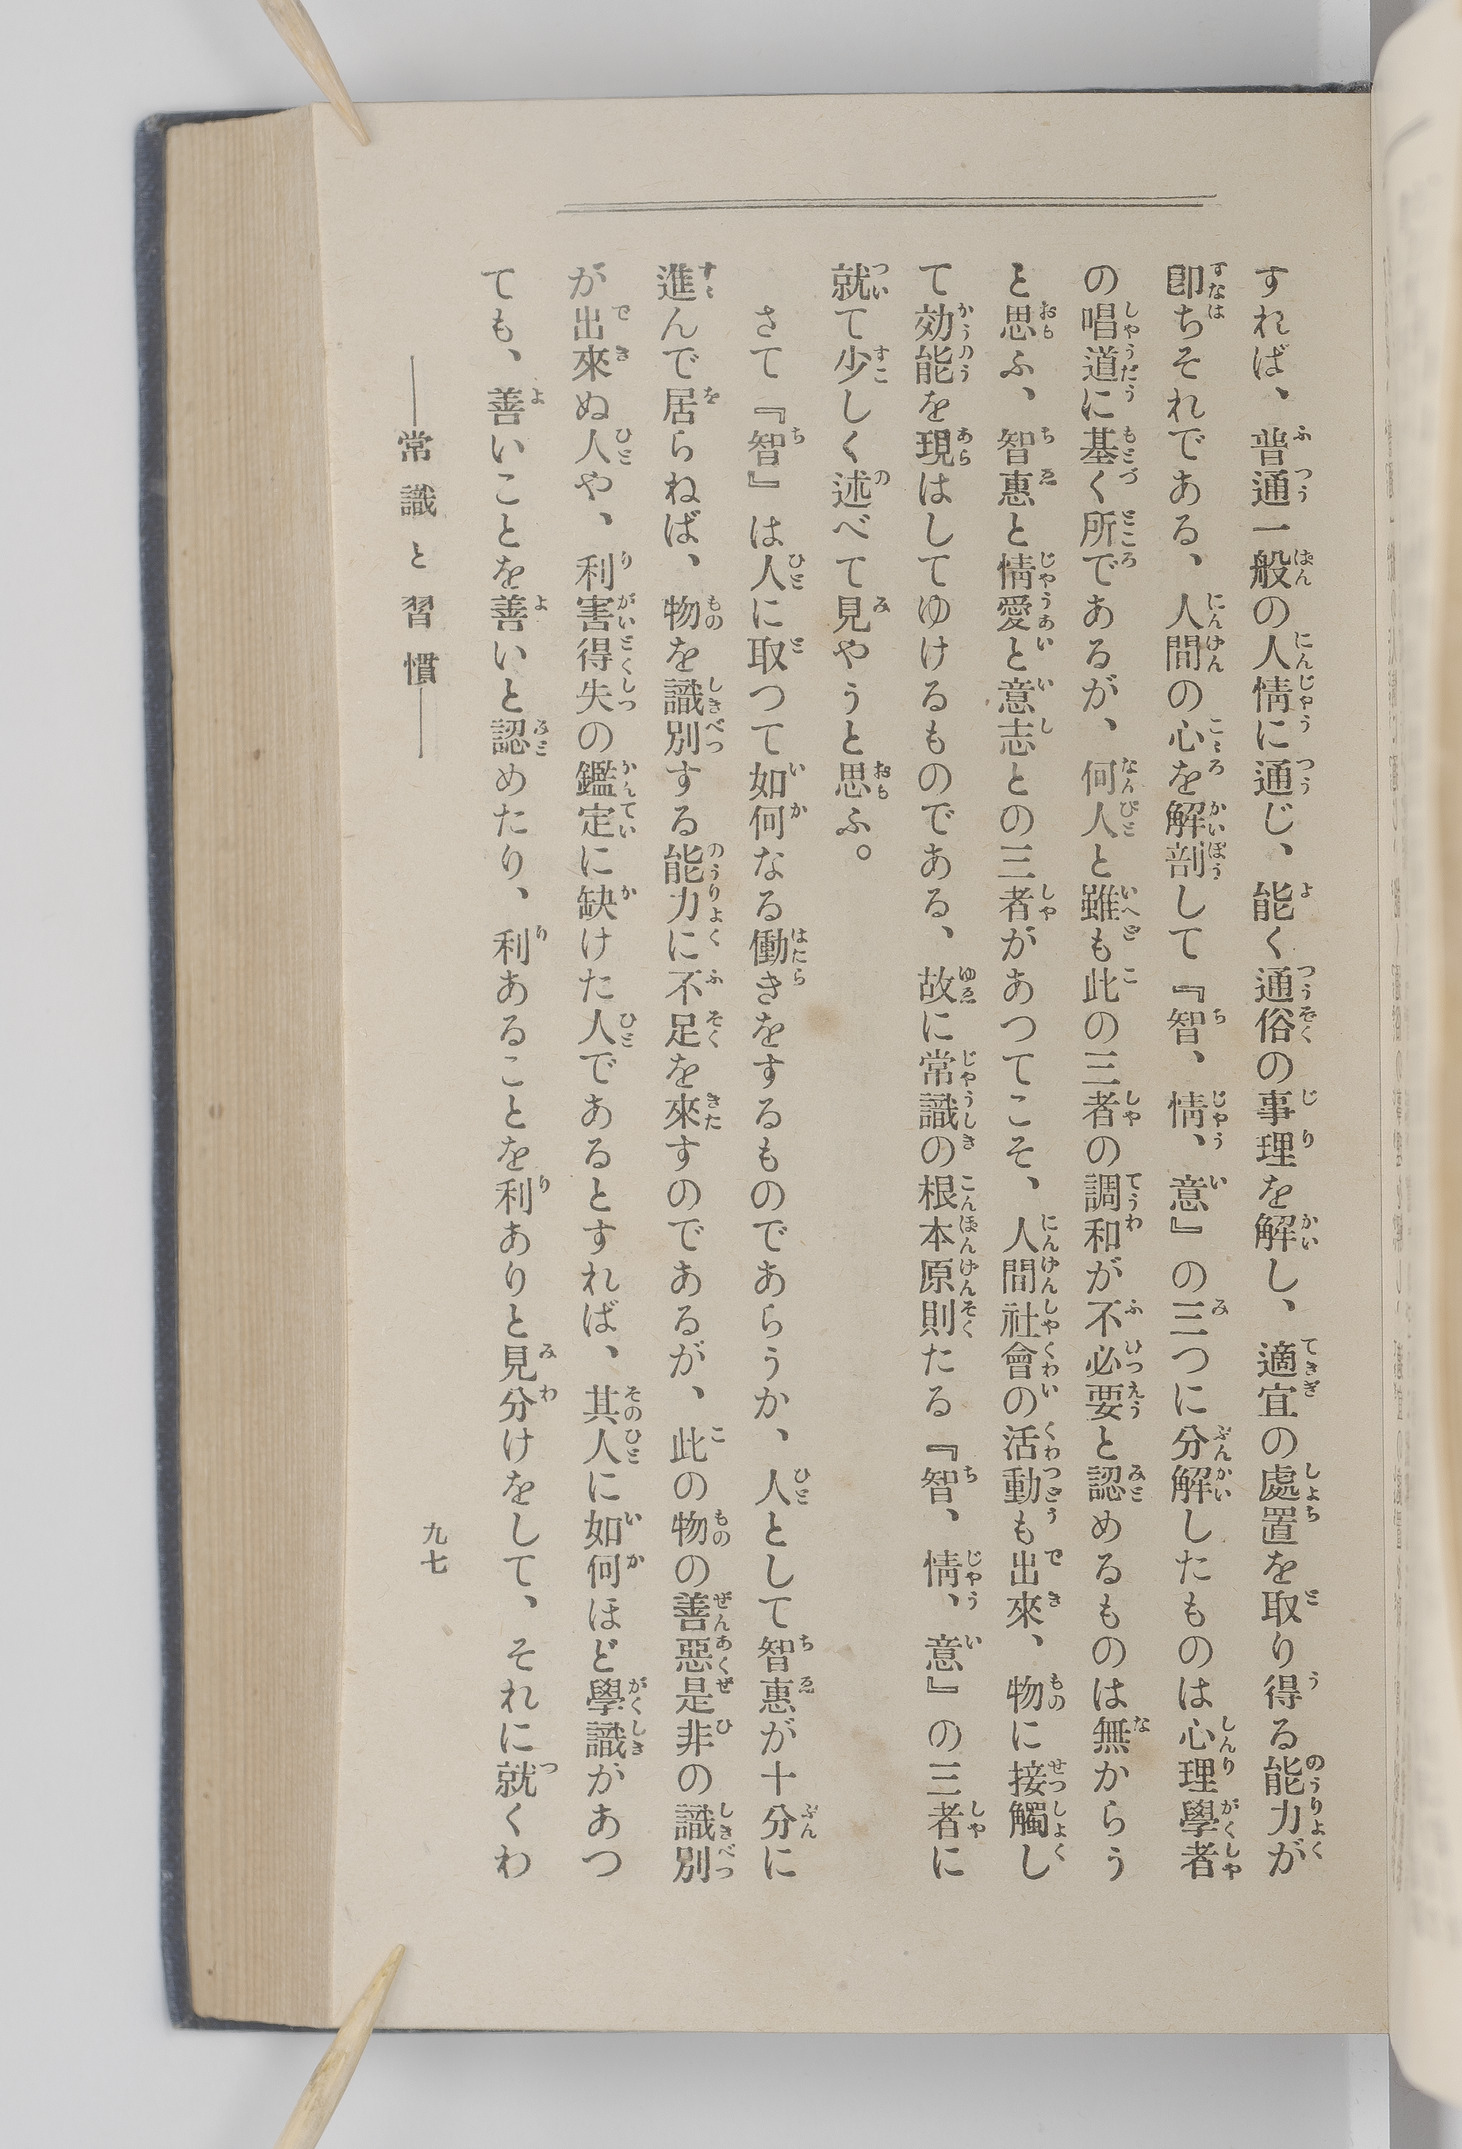 すれば、普通一般の人情に通じ、能く通俗の事理を解し、適宜の處置を取り得る能力が
卽ちそれである、人間の心を解剖して『智、情、意』の三つに分解したものは心理學者
の唱道に基く所であるが、何人と雖も此の三者の調和が不必要と認めるものは無からう
と思ふ、智惠と情愛と意志との三者があつてこそ、人間社會の活動も出來、物に接觸し
て効能を現はしてゆけるものである、故に常識の根本原則たる『智、情、意』の三者に
就て少しく述べて見やうと思ふ。
さて『智』は人に取つて如何なる働きをするものであらうか、人として智惠が十分に
進んで居らねば、物を識別する能力に不足を來すのであるが、此の物の善惡是非の識別
が出來ぬ人や、利害得失の鑑定に缺けた人であるとすれば、其人に如何ほど學識があつ
ても、善いことを善いと認めたり、利あることを利ありと見分けをして、それに就くわ
――常識と習慣――
九七